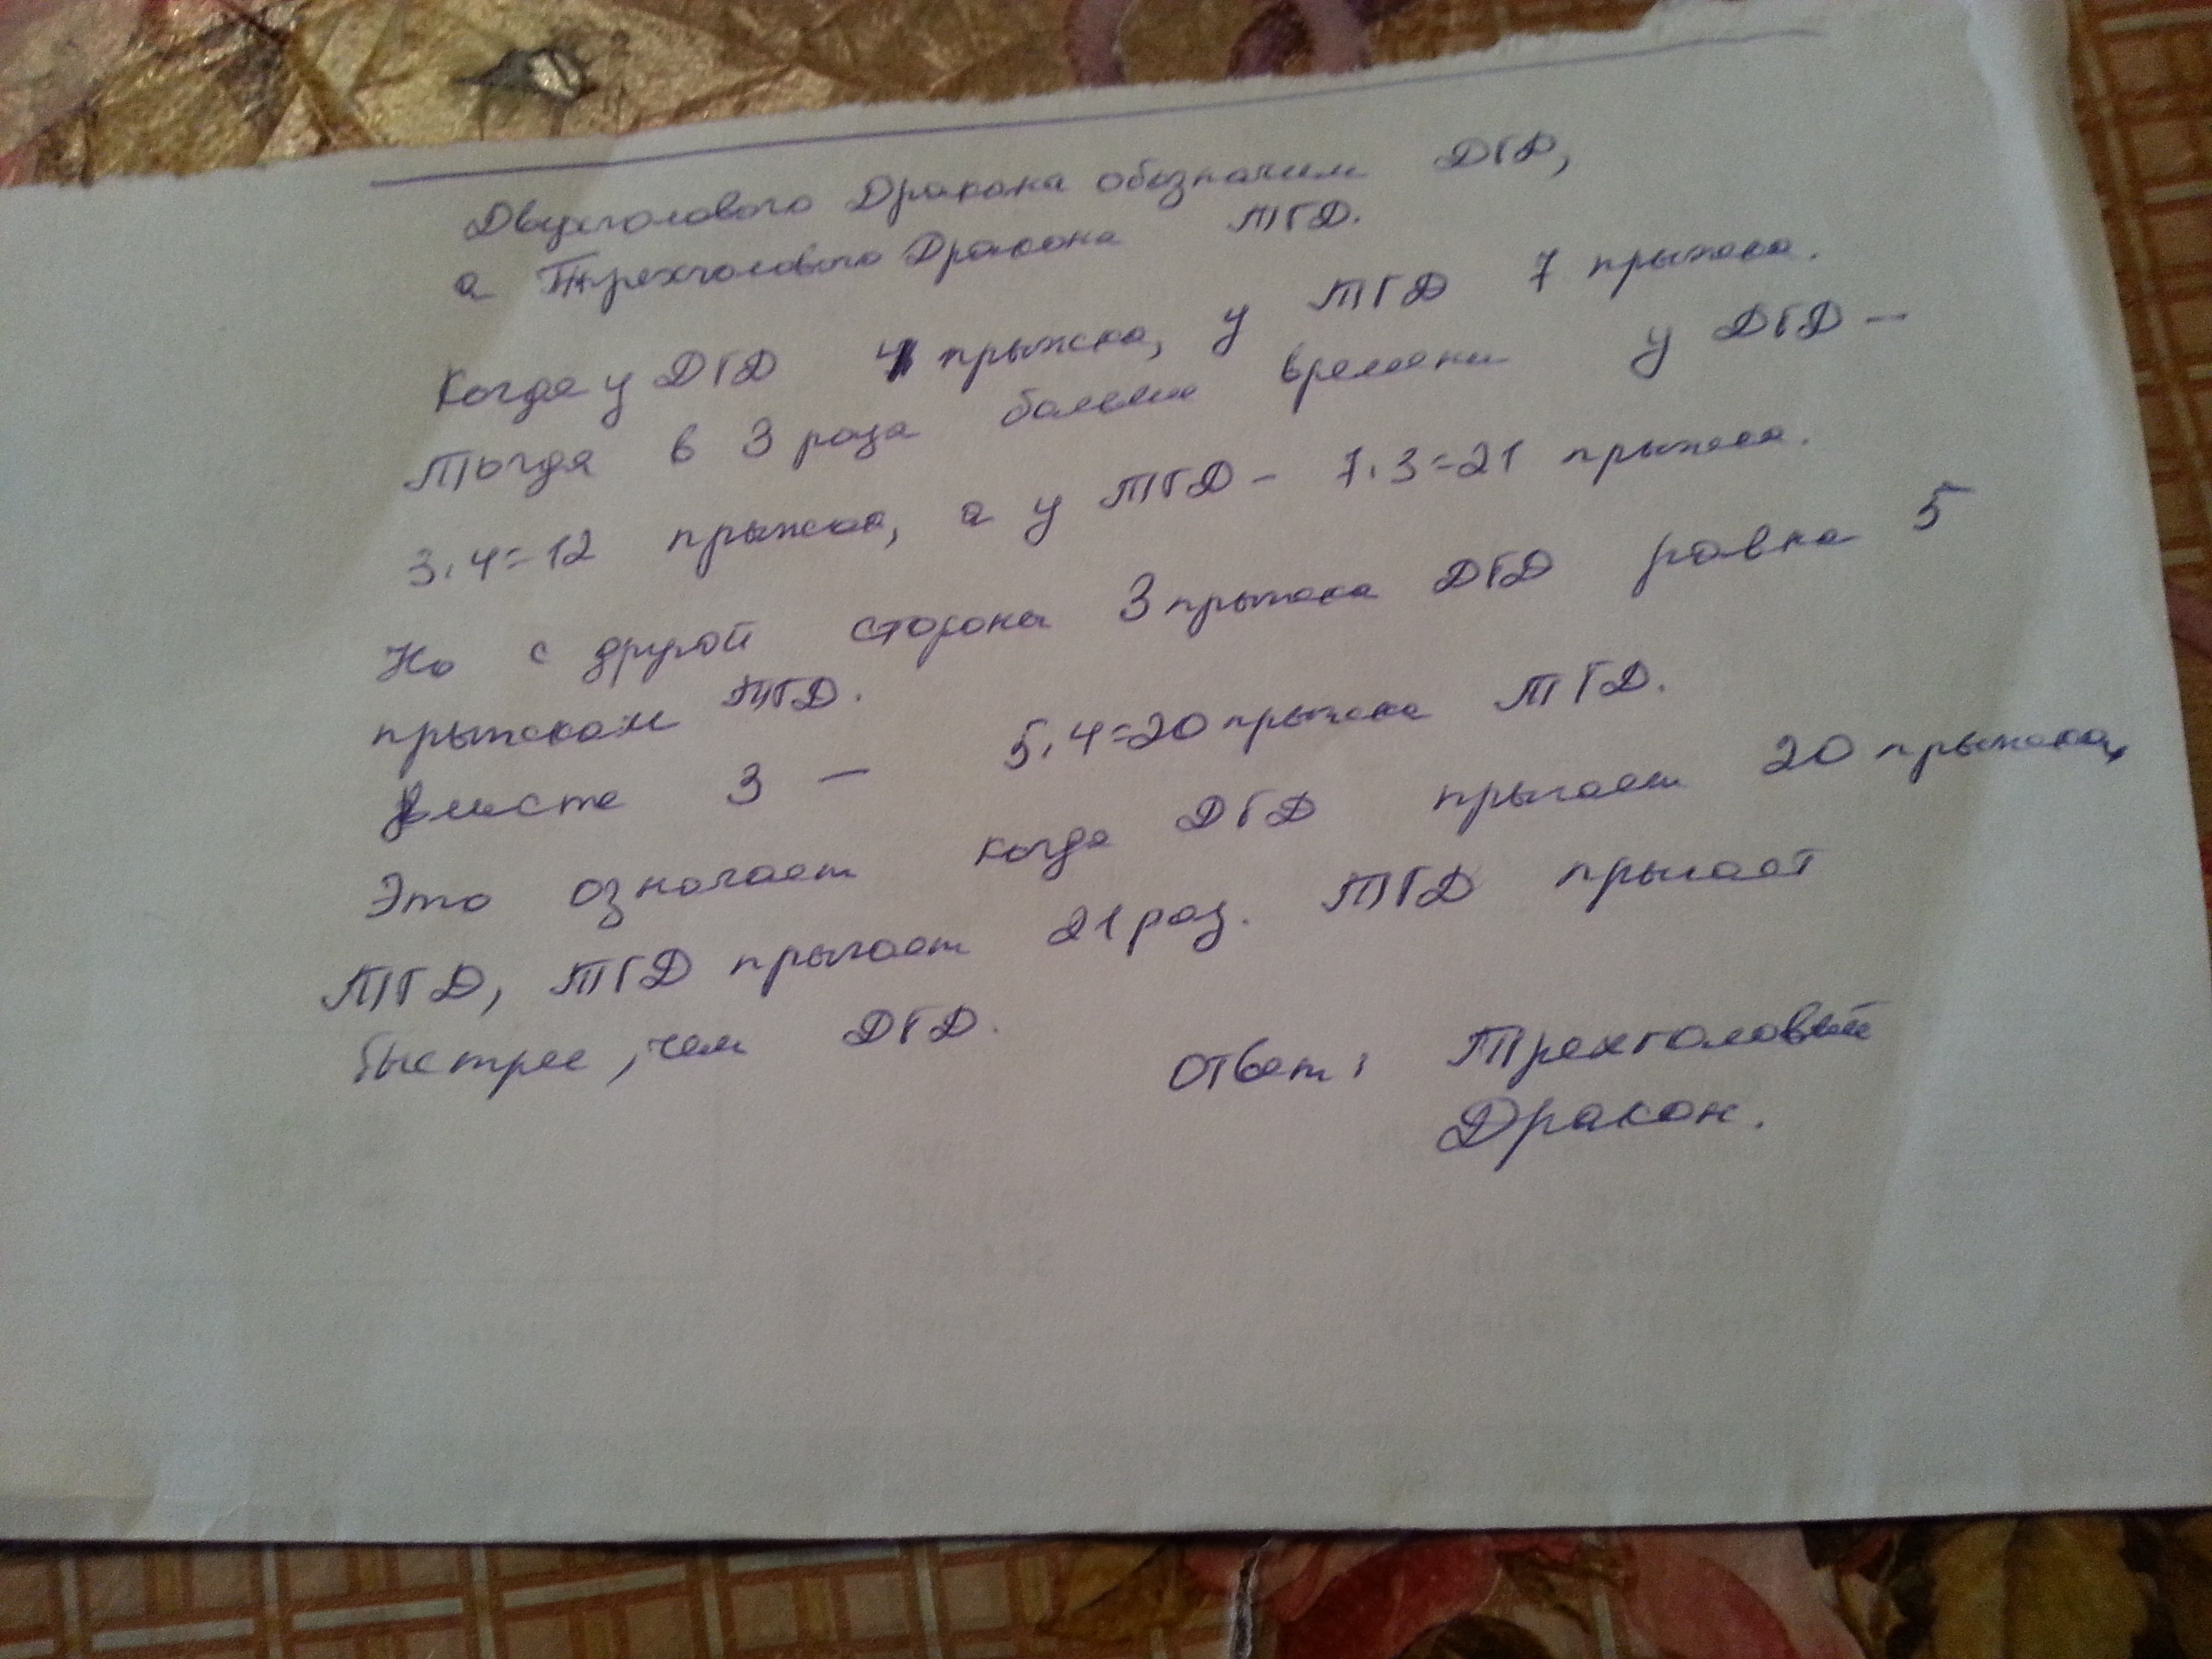 Двухголового Дракона обозначим ДГД,
а Трехголового Дракона ТГД.
Когда у ДГД 4 прыжка, у ТГД 7 прыжка.
Тогда в 3 раза больше времени у ДГД –
3·4=12 прыжка, а у ТГД – 7·3=21 прыжка.
Но с другой стороны 3 прыжка ДГД равна 5
прыжкам ТГД.
Вместе 3 – 5·4=20 прыжка ТГД.
Это означает когда ДГД прыгает 20 прыжка,
ТГД, ТГД прыгает 21 раз. ТГД прыгает
быстрее, чем ДГД.
Ответ: Трехголовый
Дракон.